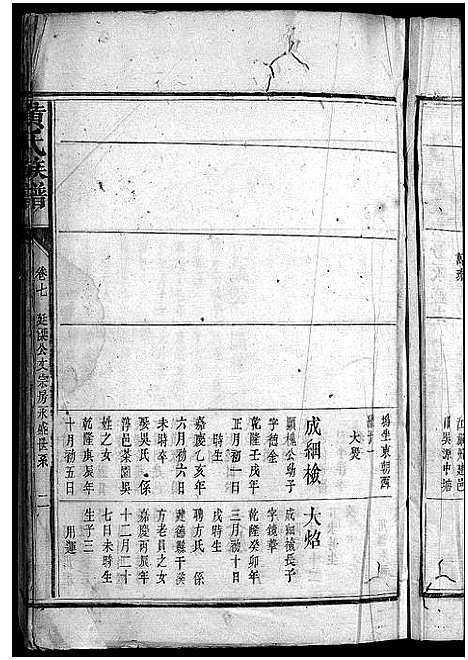 塢坐東朝西
子一
大煛
成綱檢
顯穆公幼子
字德金
乾隆壬戌年
正月初一日
時生
嘉慶乙亥年
六月初六日
未時卒
娶吳氏係
淳邑茶園吳
姓之女
乾隆庚辰年
十月初五日
大焰
成綱檢長子
字鏡華
乾隆癸卯年
三月初十日
戌時生
聘方氏係
建德縣于溪
方老員之女
嘉慶丙辰年
十二月二十
七日未時生
生子二
用運
黃氏族譜
卷七
公文宗房永綏世系
二